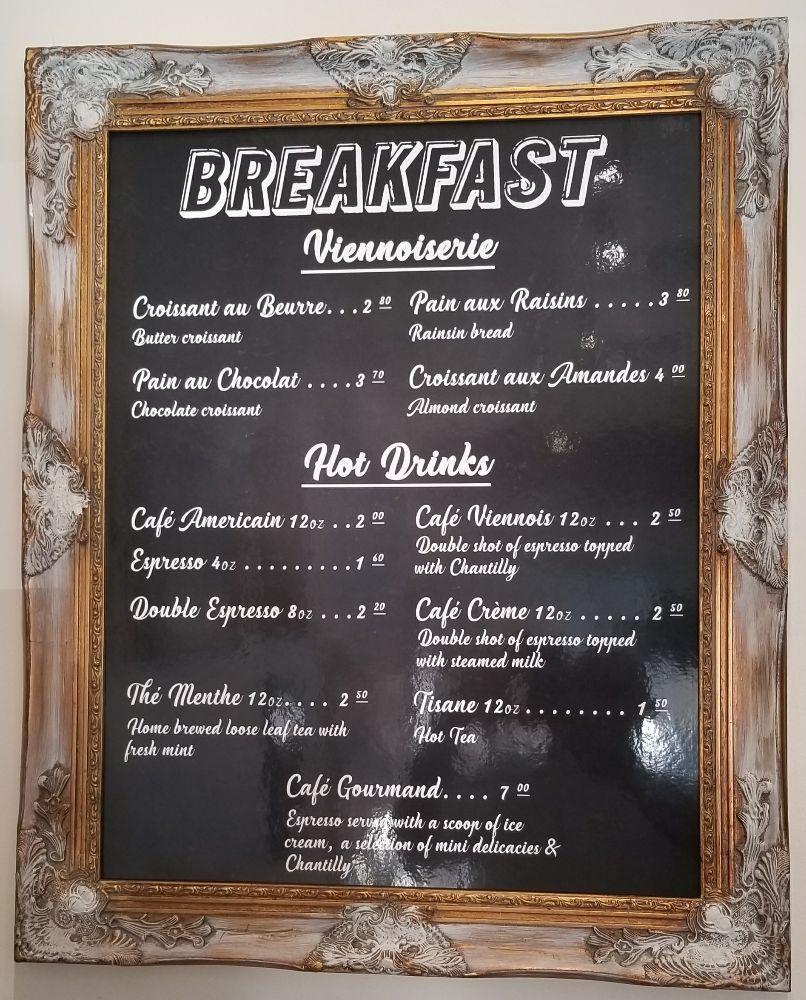 BREAKFAST
Viennoiserie
Croissant au Beurre...2 80
Butter croissant
Pain aux Raisins .....3 80
Rainsin bread
Pain au Chocolat ....3 70
Chocolate croissant
Croissant aux Amandes 4 00
Almond croissant
Hot Drinks
Café Americain 12oz ..2 00
Espresso 4oz .........1 60
Double Espresso 8oz ...2 20
Café Viennois 12oz ... 2 50
Double shot of espresso topped
with Chantilly
Café Crème 12oz ..... 2 50
Double shot of espresso topped
with steamed milk
Thé Menthe 12oz.... 2 50
Home brewed loose leaf tea with
fresh mint
Tisane 12oz ........ 1 50
Hot Tea
Café Gourmand.... 7 00
Espresso served with a scoop of ice
cream, a selection of mini delicacies &
Chantilly